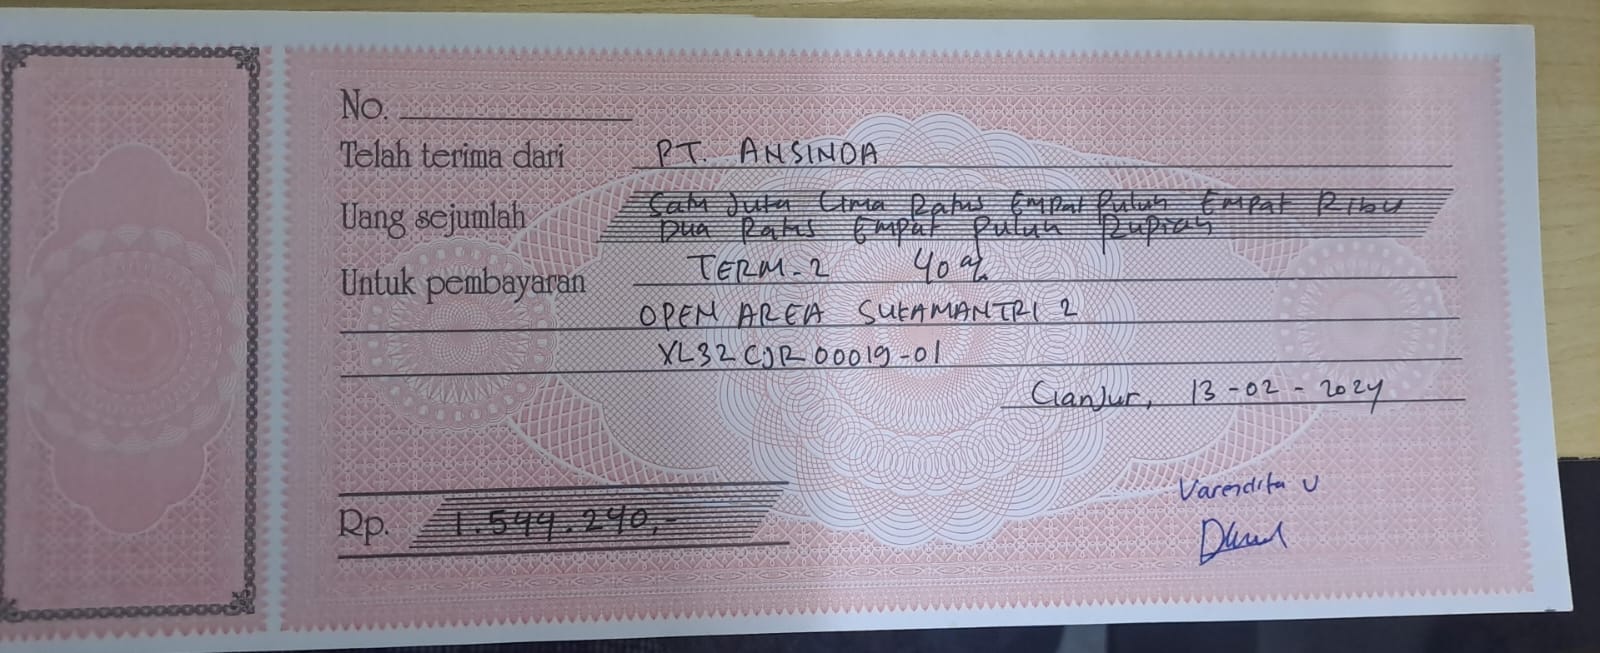 No.
Telah terima dari PT. ANSINDA
Uang sejumlah Satu Juta Lima Ratus Empat Puluh Empat Ribu
Dua Ratus Empat Puluh Rupiah
Untuk pembayaran TERM-2 40%
OPEN AREA SUKAMANTRI 2
XL32CJR00019-01
Cianjur, 13-02-2024
Varendita U
Rp. 1.544.240,-